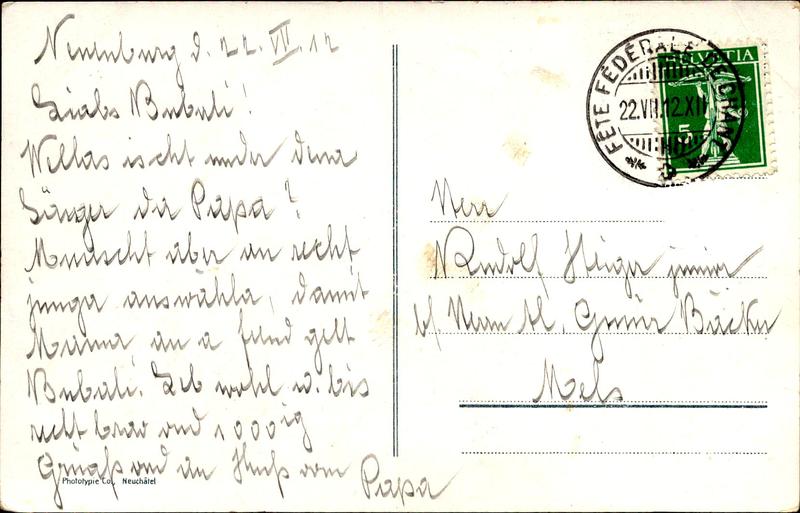 Neuenburg d. 22. VII. 12
Liabs Bubali!
Wellas ischt under dena
Sänger der Papa?
Muascht aber an recht
junga auswähla, damit
Mama, an a fend gelt
Bubali. Leb wohl u. bis
recht brav und 1000ig
Grüaß und an Kuß vom
Papa
Phototypie Co., Neuchâtel
FÊTE FÉDÉRALE DE CHANT
22.VII.12.XII
HELVETIA
5
Herr
Rudolf Heiger junior
b/ Herrn Al. Bäcker
Mels